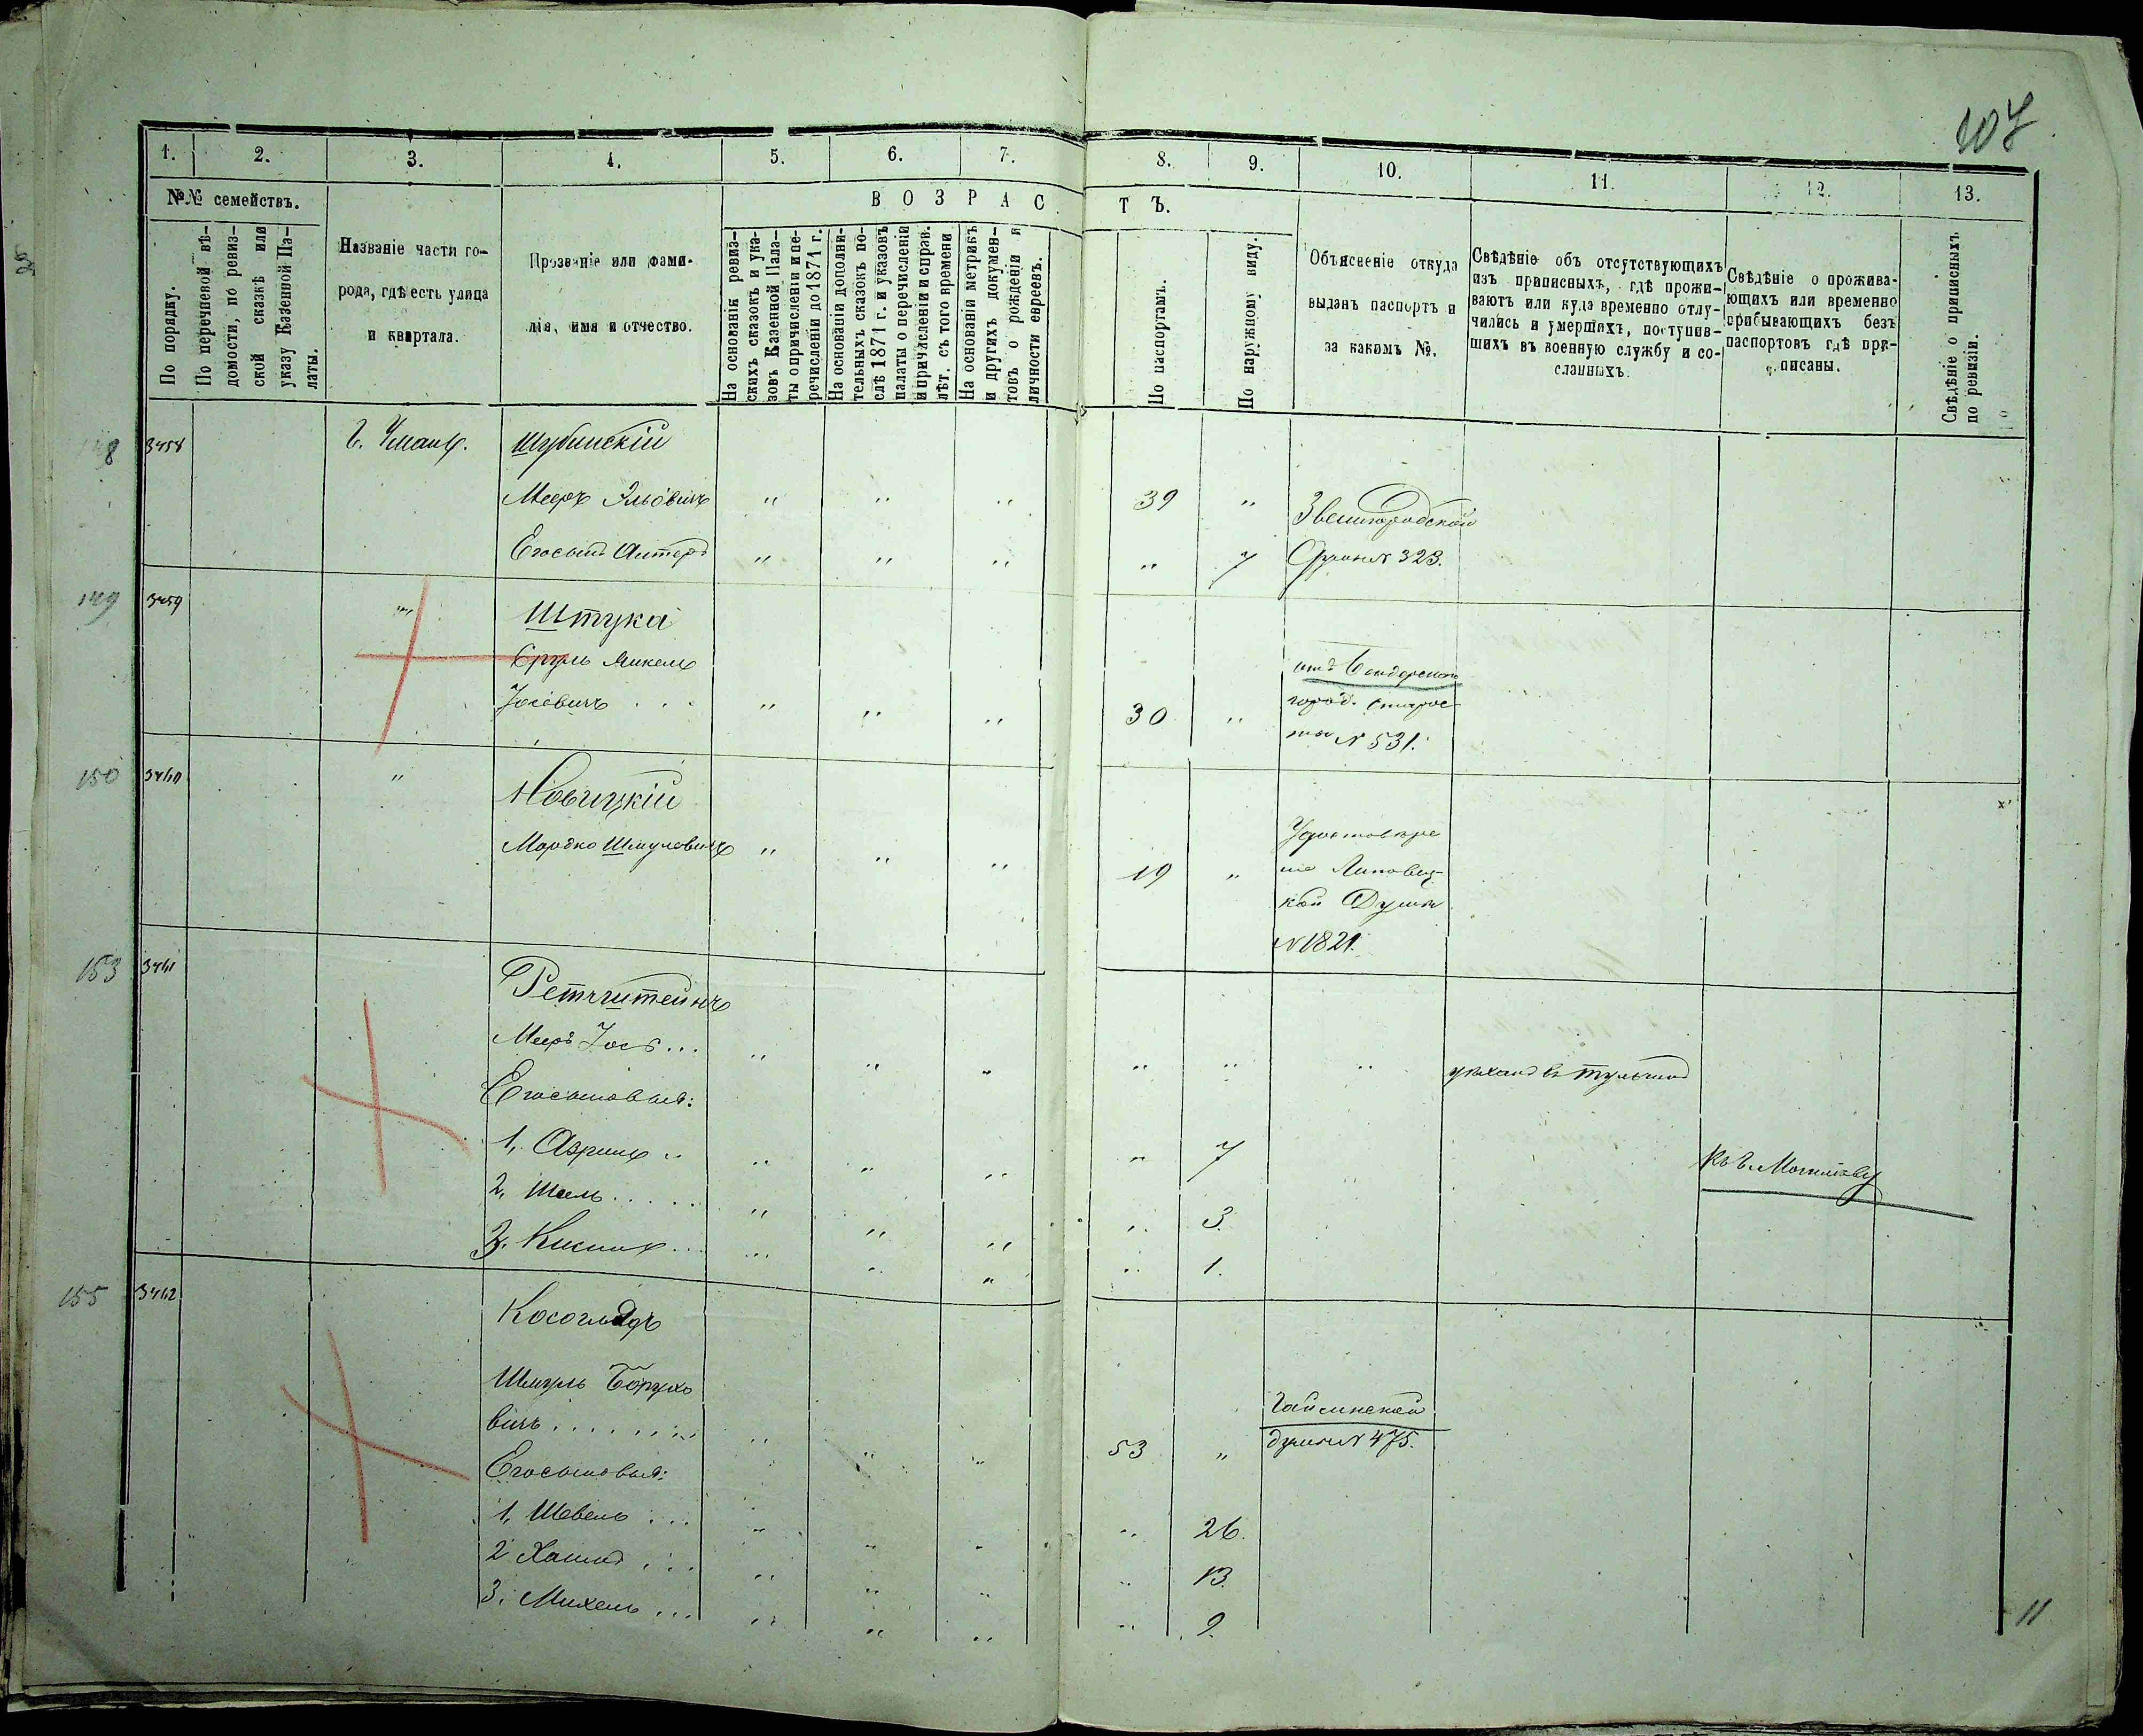 107
1. 2. 3. 4. 5. 6. 7. 8. 9. 10. 11. 12. 13.
№№ семействъ.
По порядку.
По перечневой вѣ-
домости, по ревиз-
ской сказкѣ или
указу Казенной Па-
латы.
Названіе части го-
рода, гдѣ есть улица
и квартала.
Прозваніе или фами-
лія, имя и отчество.
ВОЗРАСТЪ.
На основаніи ревиз-
скихъ сказокъ и ука-
зовъ Казенной Пала-
ты о причисленіи и пе-
речисленіи до 1871 г.
На основаніи дополни-
тельныхъ сказокъ по-
слѣ 1871 г. и указовъ
палаты о перечисленіи
и причисленіи и справ.
лѣт. съ того времени
На основаніи метрикъ
и другихъ докумен-
товъ о рожденіи и
личности евреевъ.
По паспортамъ.
По наружному виду.
Объясненіе откуда
выданъ паспортъ и
за какимъ №.
Свѣдѣніе объ отсутствующихъ
изъ приписныхъ, гдѣ прожи-
ваютъ или куда временно отлу-
чились и умершихъ, поступив-
шихъ въ военную службу и со-
сланныхъ.
Свѣдѣніе о прожива-
ющихъ или временно
прибывающихъ безъ
паспортовъ гдѣ при-
писаны.
Свѣдѣніе о приписныхъ
по ревизіи.
148 3458 Г. Умань. Шубинскій
Мееръ Эльовичъ " " " 39 " Звенигородской
Его сынъ Алтеръ " " " " 7 Думы № 323.
149 3459 " Штука
Сруль Микель
отъ Бендерского
Іосевичъ . . . " " " 30 " город. старос-
ты № 531.
150 3460 " Новицкій
Мордко Шмулевичъ " " " 19 " Удостовѣре
ніе Липовец-
кой Думы
№ 1821.
153 3461 Ретчштейнъ
Мееръ Іось... " " " " " " уѣхалъ въ Тульчинъ
Его сыновья:
1, Азрилъ .. " " " " 7 Къ г. Могилеву
2, Шаель..... " " " " 3.
3. Кисиль... " " " " 1.
155 3462 Косоглядъ
Шмуль Борухо
вичъ....... " " " 53 " Гайсинской
думы № 475.
Его сыновья:
1, Шевель ... " " " " 26.
2 Хаимъ ... " " " " 13.
3. Михель ... " " " " 9.
11